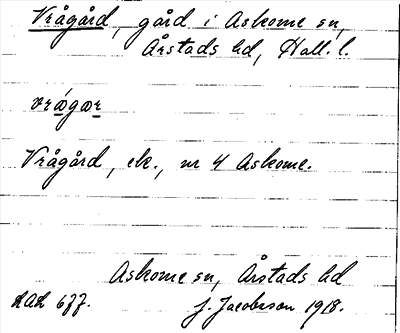 Vrågård, gård i Askome sn,
Årstads hd, Hall. l.
vrǻgær
Vrågård, ek., nr 4 Askome.
Askome sn, Årstads hd
J. Jacobsson 1918.